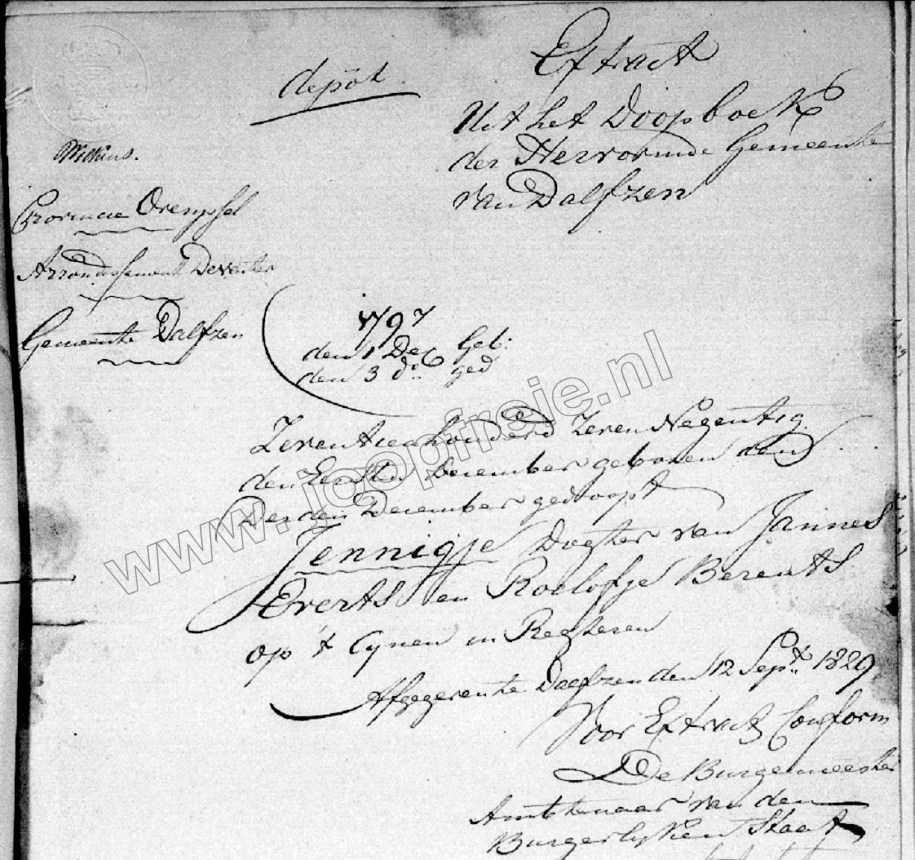 depôt
Extract
Uit het Doopboek
der Hervormde Gemeente
van Dalfzen
Provincie Overijssel
Arrondissement Deventer
Gemeente Dalfzen
1797
den 1 Dec geb:
den 3 do ged
Zeventienhonderd Zeven Negentig
den Eersten December geboren den
Derden December gedoopt
Jennigje Dogter van Jannes
Everts en Roelofje Berents
op 't Cynen in Regteren
Afgegeven te Dalfzen den 12 Sept. 1829
Voor Extract Conform
De Burgemeester
Ambtenaar van den
Burgerlyken Staat
www.joopfreie.nl